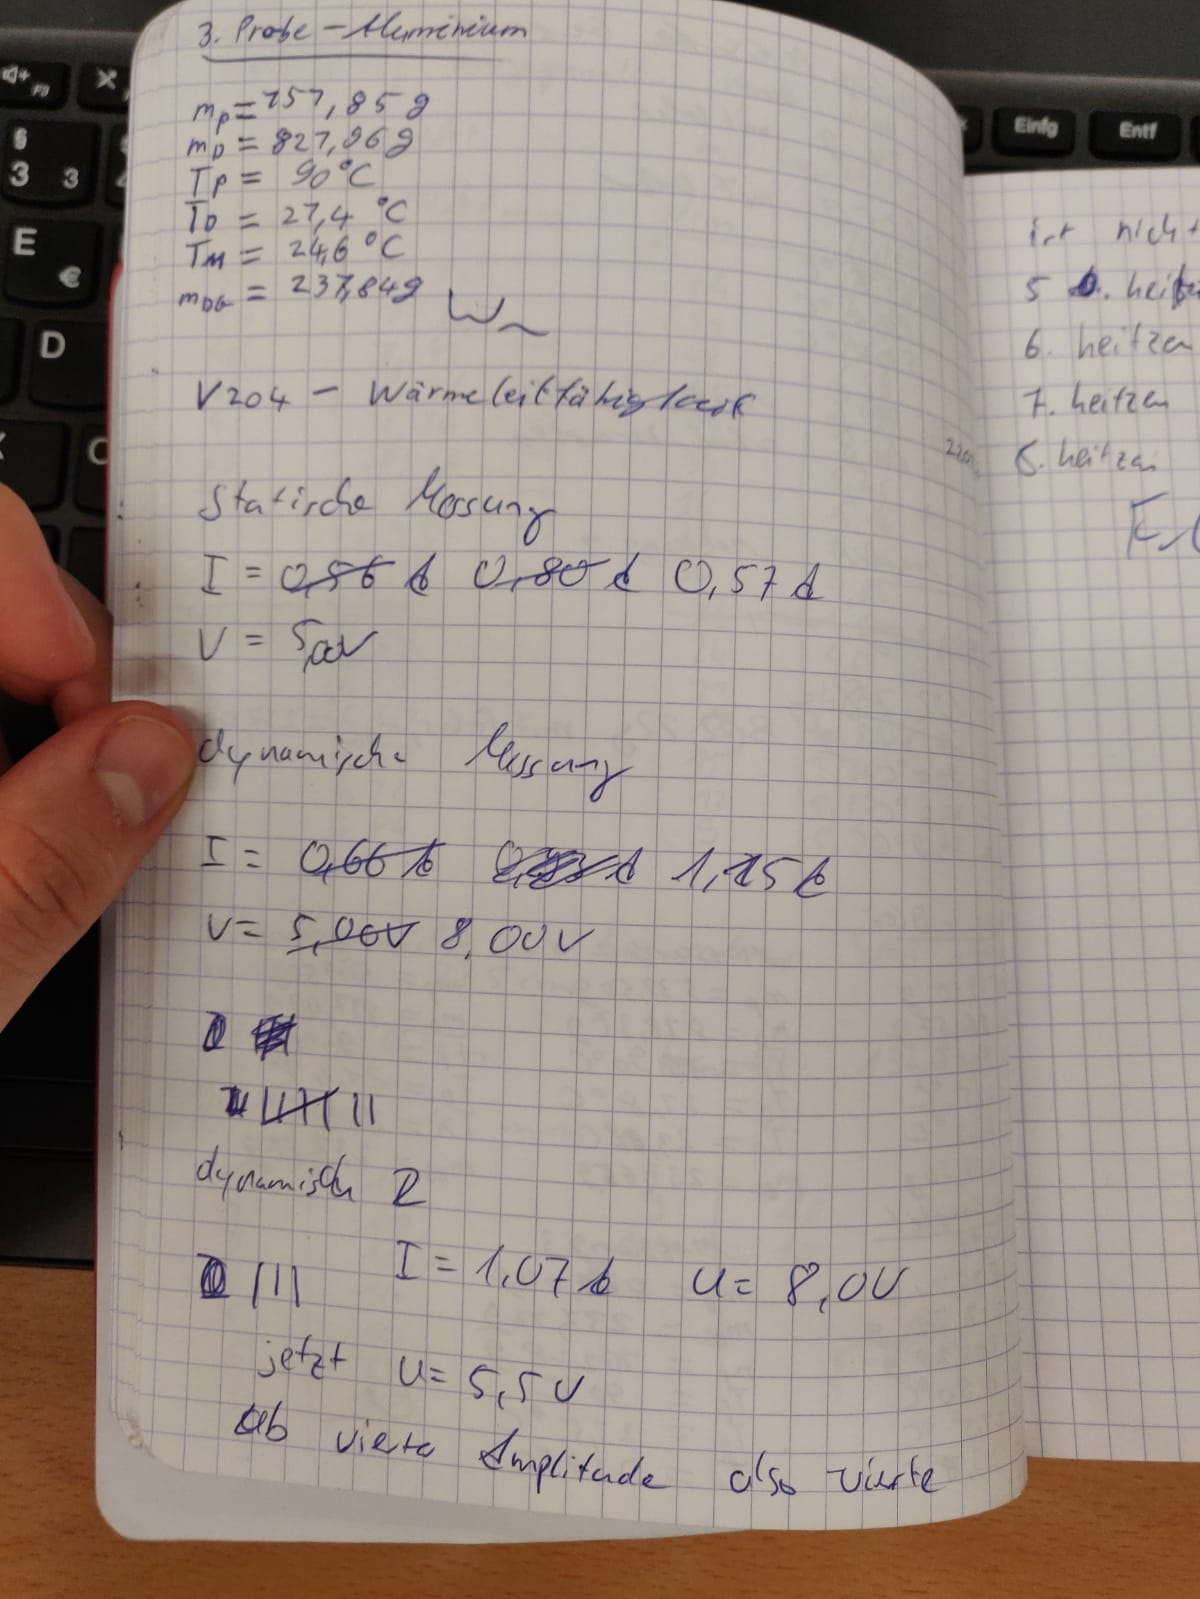 3. Probe - Aluminium
mp = 157,85g
mD = 827,96g
Tp = 90°C
TD = 27,4 °C
TM = 24,6 °C
mDG = 237,84g
V204 - Wärmeleitfähigkeit
Statische Messung
I = 0,56 A 0,80 A 0,57 A
V = 5,00V
dynamische Messung
I = 0,66 A 1,15 A
V = 5,00V 8,00V
dynamisch 2
I = 1,07 A U = 8,0V
jetzt U = 5,5V
ab vierte Amplitude also vierte
ist nicht
5. heitzen
6. heitzen
7. heitzen
8. heitzen
F3
§
3 3
E €
D
Einfg
Entf